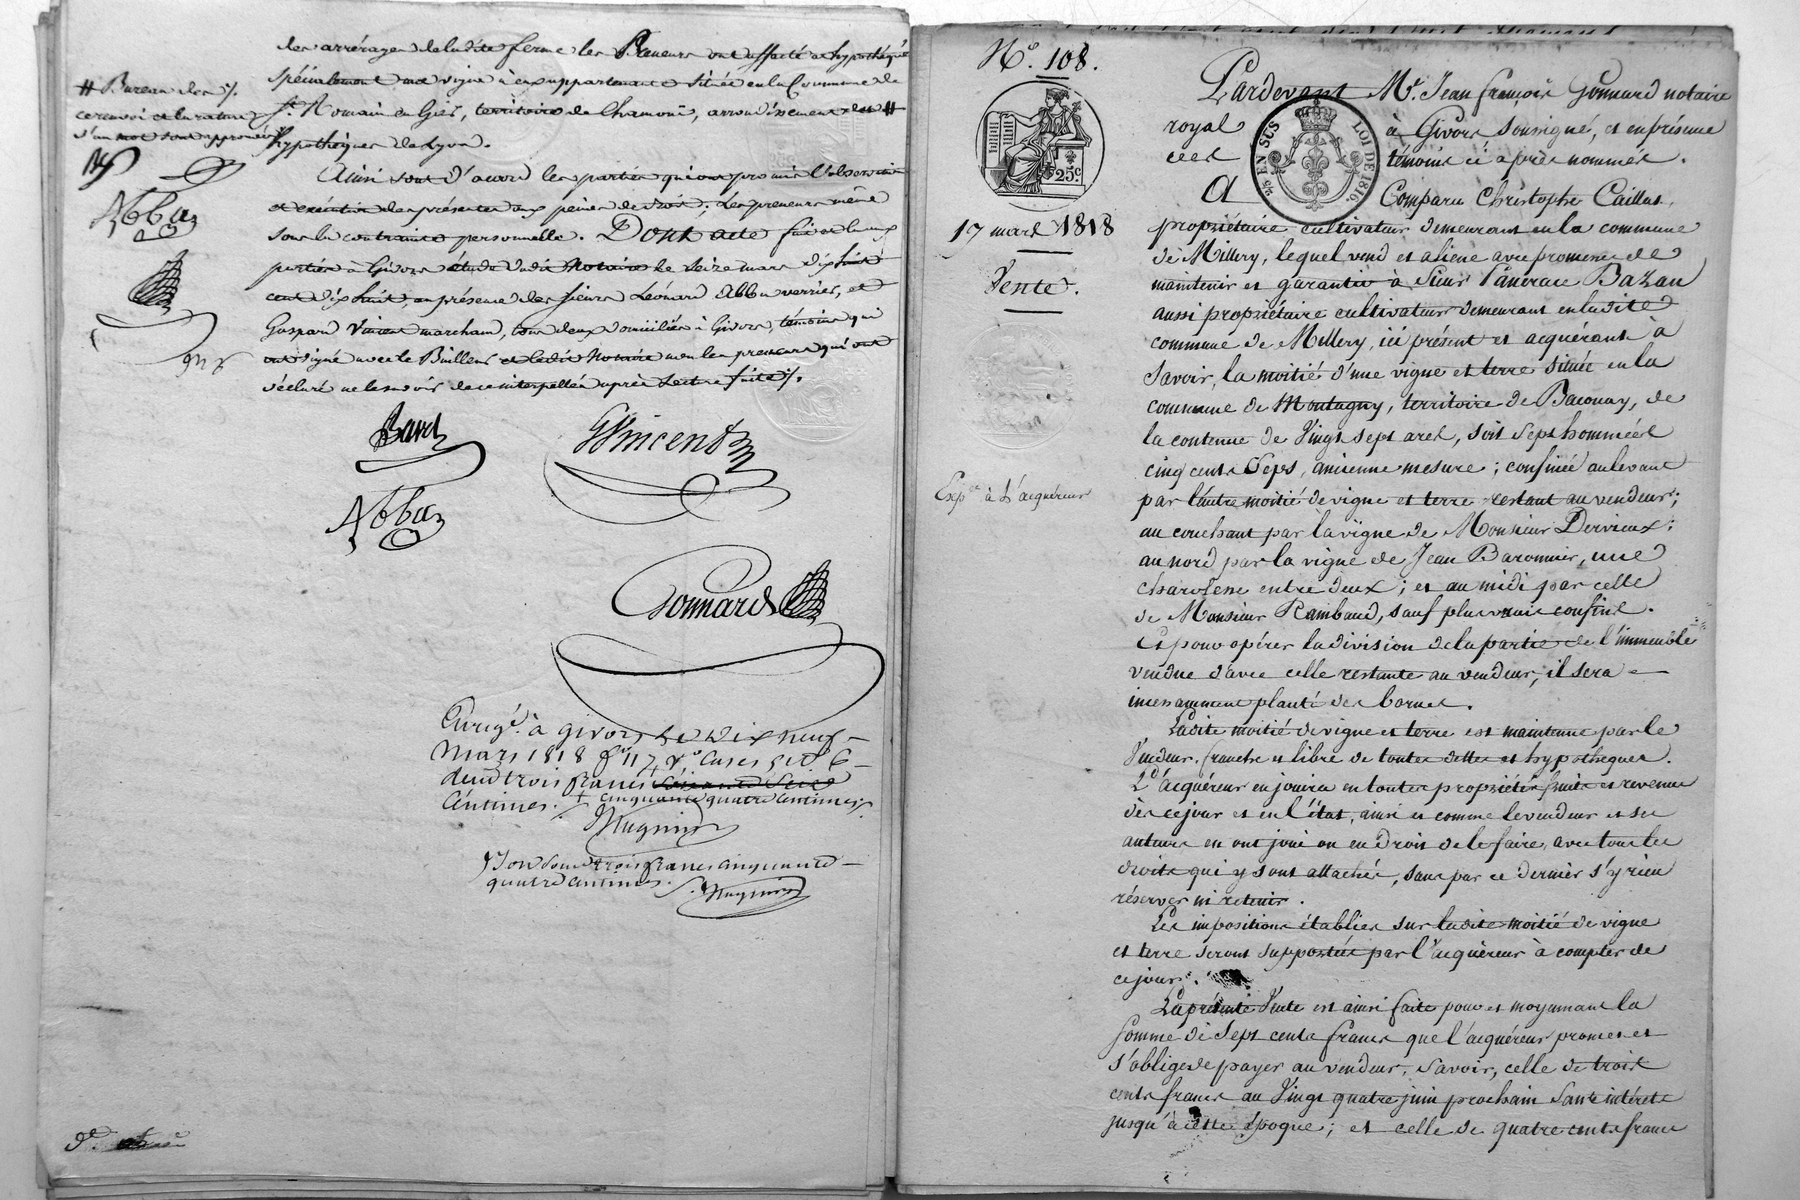 des arrérages de ladite ferme les Preneurs ont affecté et hypothéqué
spécialement une vigne à eux appartenante située en la Commune de
St. Romain en Gier, territoire de Chamoni, arrondissement des #
hypothèques de Lyon.
# Bureau des %.
ce renvoi et la rature
d'un mot sont approuvés
Ainsi sont d'acord les parties qui ont promis l'observation
et exécution des présentes aux peines de droit; les preneurs même
sous la contrainte personnelle. Dont acte fait et lu aux
parties à Givors étude dudit Notaire le seize mars dix huit
cent dix huit, en présence des sieurs Léonard Abba verrier, et
Gaspard Vincent marchand, tous deux domiciliés à Givors, témoins qui
ont signé avec le Bailleur et ledit Notaire non les preneurs qui ont
déclaré ne le savoir de ce interpellés après lecture faite %.
Abba
Bard
GVincent
Abba
Gonnard
Enregé. à Givors le dix neuf
mars 1818 fo 117 vo cases 5 et 6
deux trois francs
centimes. + cinquante quatre centimes %.
Hugnin
Bon pour trois francs cinquante
quatre centimes.
Hugnin
No. 108.
25 c
17 mars 1818
Vente.
Expon. à l'acquéreur
Pardevant Me. Jean françois Gonnard notaire
royal à Givors soussigné, et en présence
des témoins ci après nommés.
25 EN SUS
LOI DE 1816.
A Comparu Christophe Caillat,
propriétaire cultivateur demeurant en la commune
de Millery, lequel vend et aliène avec promesse de
maintenir et garantir à Sieur Pancrace Bazan
aussi propriétaire cultivateur demeurant en ladite
commune de Millery, ici présent et acquérant à
Savoir, la moitié d'une vigne et terre située en la
commune de Montagny, territoire de Baconay, de
la contenue de Vingt sept ares, soit sept hommées
cinq cents Seps, ancienne mesure; confinée au levant
par l'autre moitié de vigne et terre restant au vendeur;
au couchant par la vigne de Monsieur Dervieux;
au nord par la vigne de Jean Baronnier, une
charrière entre deux; et au midi par celle
de Monsieur Rambaud, sauf plus vrais confins.
Et pour opérer la division de la partie de l'immeuble
vendue d'avec celle restante au vendeur, il sera
incessamment planté des bornes.
Ladite moitié de vigne et terre est maintenue par le
Vendeur, franche et libre de toutes dettes et hypothèques.
L'acquéreur en jouira en toutes propriétés fruits et revenus
dès ce jour et en l'état, ainsi et comme le vendeur et ses
auteurs en ont joui ou eu droit de le faire, avec tous les
droits qui y sont attachés, sans par ce dernier s'y rien
réserver ni retenir.
Les impositions établies sur ladite moitié de vigne
et terre seront supportées par l'acquéreur à compter de
ce jour.
La présente Vente est ainsi faite pour et moyennant la
somme de Sept cents francs que l'acquéreur promet et
s'oblige de payer au vendeur, Savoir, celle de trois
cents francs au Vingt quatre juin prochain sans intérêts
jusqu'à cette époque; et celle de quatre cents francs